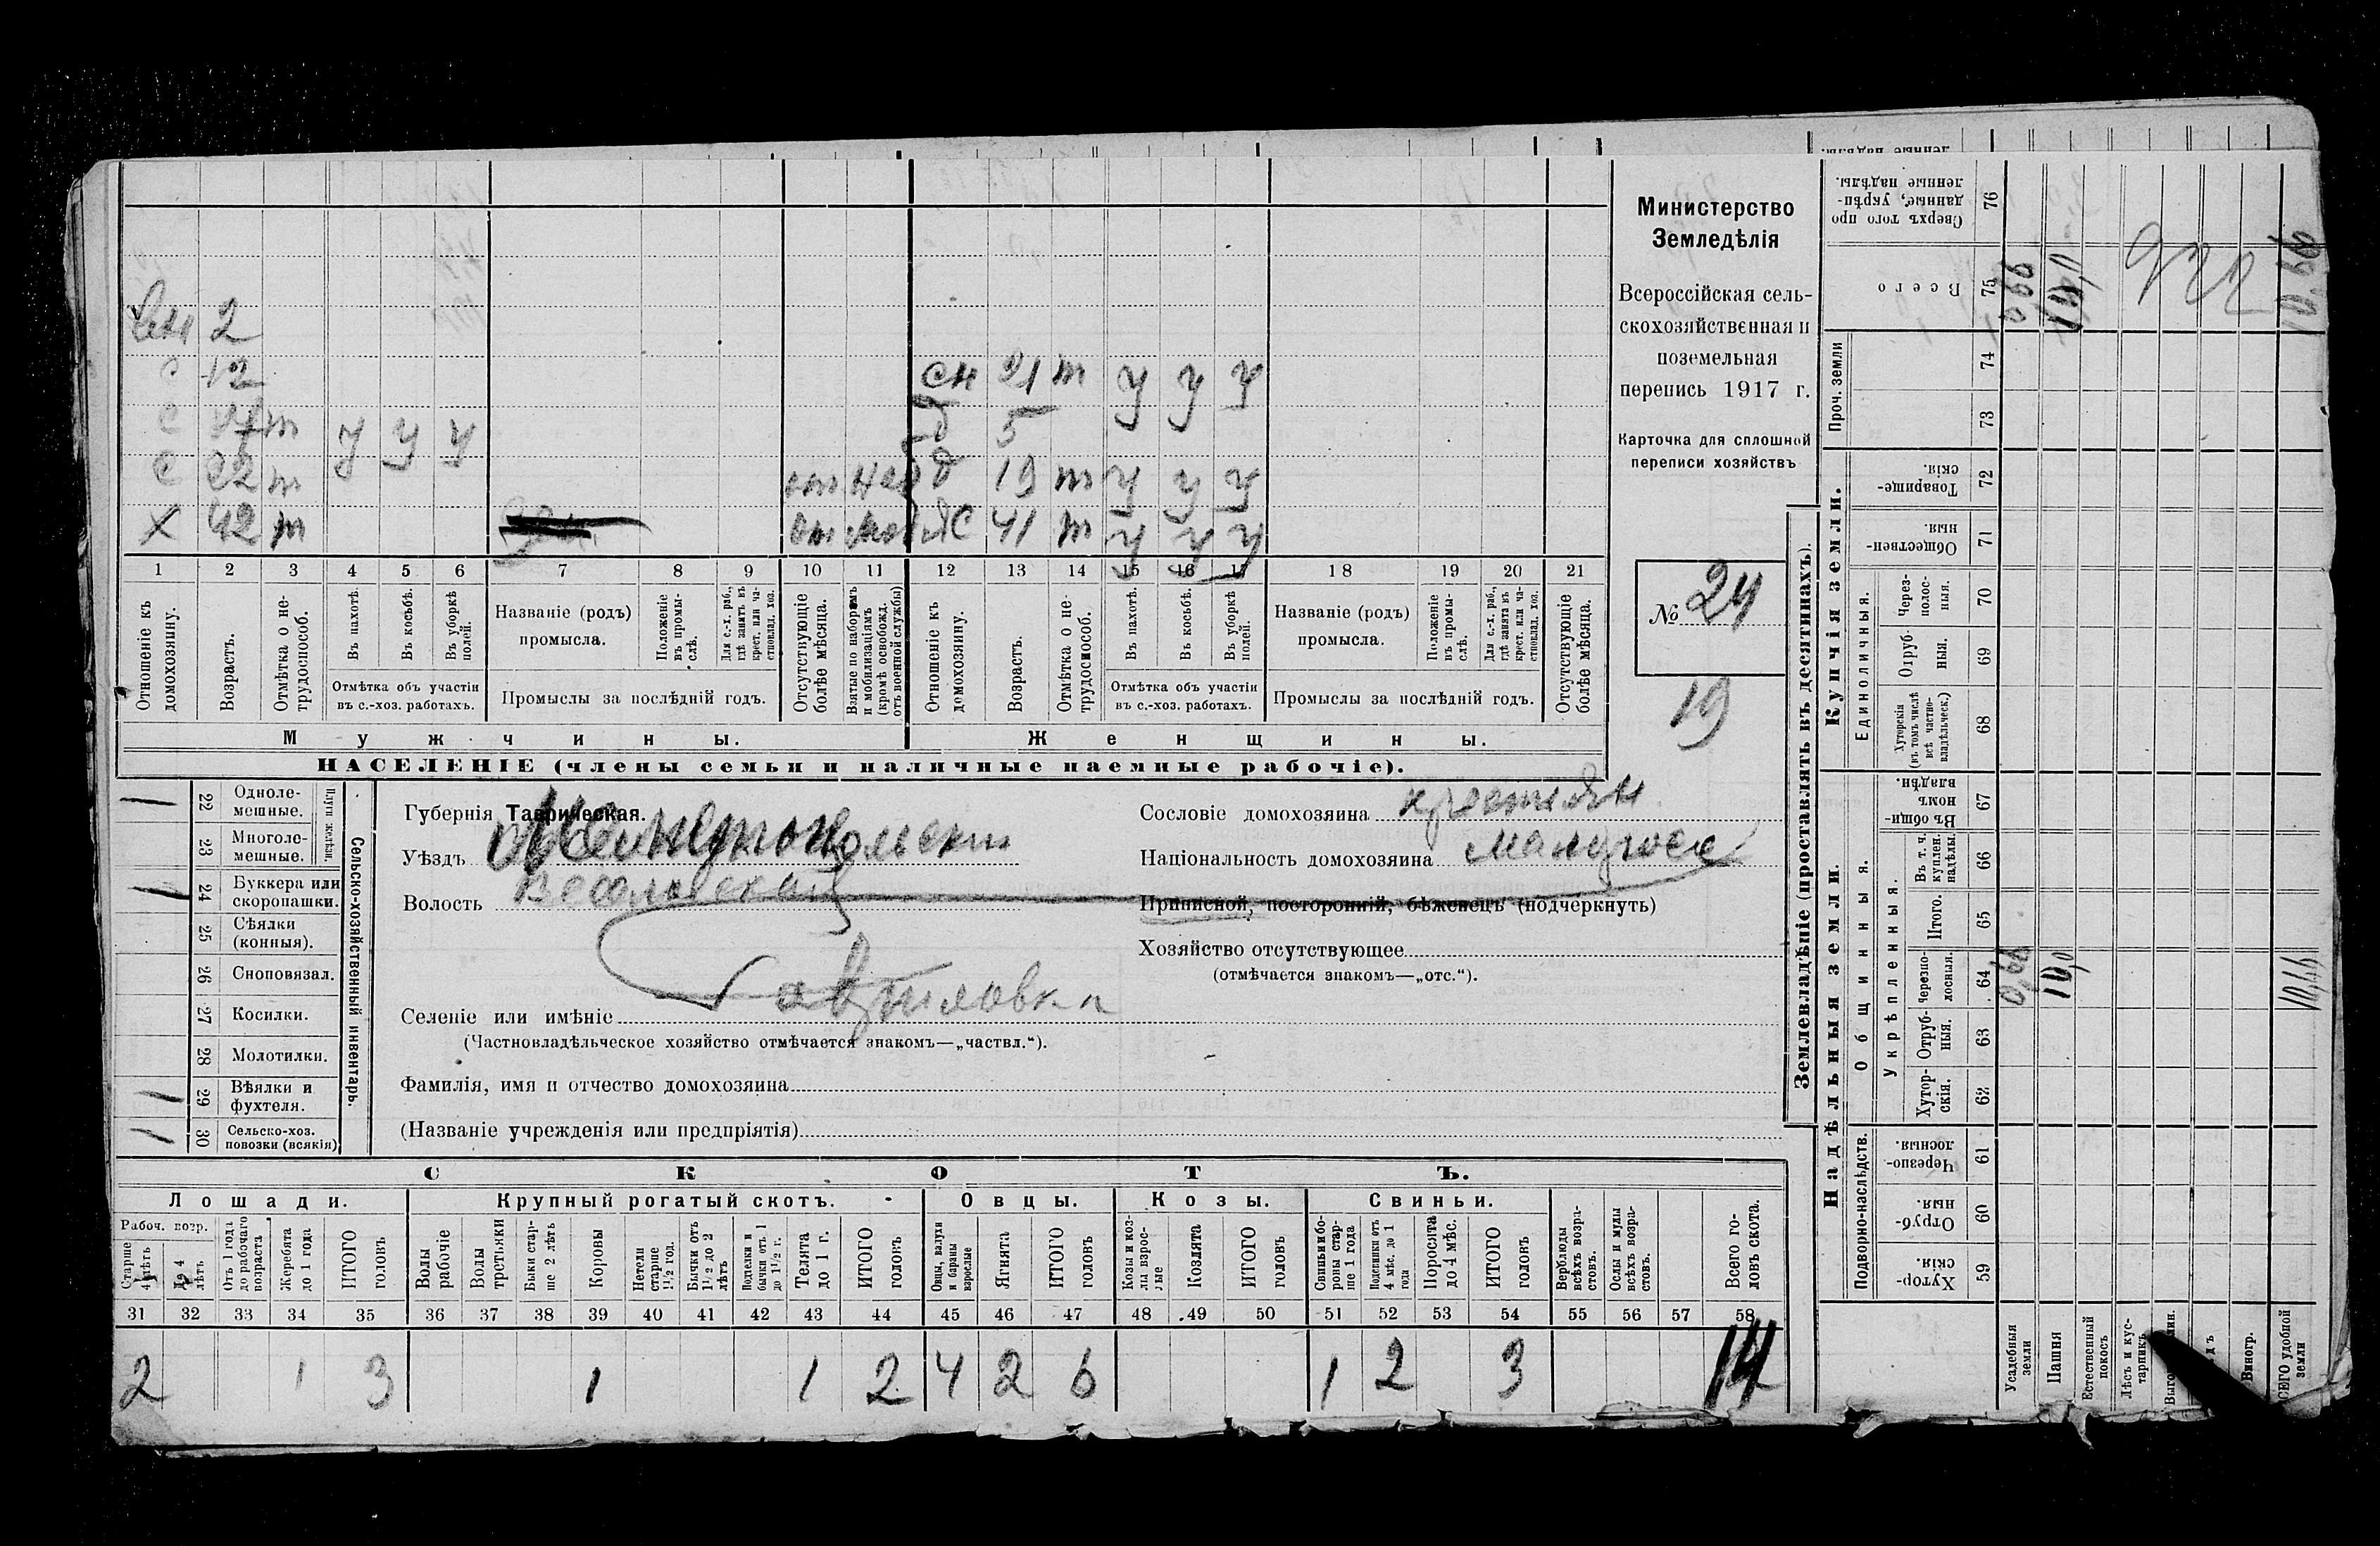 сн 2
с 12 сн 21 т у у у
с т у у у д 5
с 22 т от наб д 19 т у у у
х 42 т от моб ж 41 т у у у
1 2 3 4 5 6 7 8 9 10 11 12 13 14 15 16 17 18 19 20 21
Отношеніе къ домохозяину.
Возрастъ.
Отмѣтка о не-
трудоспособ.
Въ пахотѣ.
Въ косьбѣ.
Въ уборкѣ
полей.
Отмѣтка объ участіи
въ с.-хоз. работахъ.
Названіе (родъ)
промысла.
Положеніе
въ промы-
слѣ.
Для с.-х. раб.,
гдѣ занятъ въ
крест. или ча-
стновлад. хоз.
Промыслы за послѣдній годъ.
Отсутствующіе
болѣе мѣсяца.
Взятые по наборамъ
и мобилизаціямъ
(кромѣ освобожд.
отъ военной службы)
Отношеніе къ
домохозяину.
Возрастъ.
Отмѣтка о не-
трудоспособ.
Въ пахотѣ.
Въ косьбѣ.
Въ уборкѣ
полей.
Отмѣтка объ участіи
въ с.-хоз. работахъ.
Названіе (родъ)
промысла.
Положеніе
въ промы-
слѣ.
Для с.-х. раб.,
гдѣ занята въ
крест. или ча-
стновлад. хоз.
Промыслы за послѣдній годъ.
Отсутствующіе
болѣе мѣсяца.
Мужчины. Женщины.
НАСЕЛЕНІЕ (члены семьи и наличные наемные рабочіе).
Министерство
Земледѣлія
Всероссійская сель-
скохозяйственная и
поземельная
перепись 1917 г.
Карточка для сплошной
переписи хозяйствъ
№ 24
19
22 Одноле-
мешные.
23 Многоле-
мешные.
Плуги желѣзн.
24 Буккера или
скоропашки.
25 Сѣялки
(конныя).
26 Сноповязал.
27 Косилки.
28 Молотилки.
29 Вѣялки и
фухтеля.
30 Сельско-хоз.
повозки (всякія)
Сельско-хозяйственный инвентарь.
1
1
1
1
Губернія Таврическая.
Уѣздъ Мелитопольскій
Волость Веселовская
Селеніе или имѣніе Гавриловка
(Частновладѣльческое хозяйство отмѣчается знакомъ—„частвл.“).
Фамилія, имя и отчество домохозяина
(Названіе учрежденія или предпріятія)
Сословіе домохозяина крестьян
Національность домохозяина малоросс
Приписной, посторонній, бѣженецъ (подчеркнуть)
Хозяйство отсутствующее
(отмѣчается знакомъ—„отс.“).
СКОТЪ.
Лошади. Крупный рогатый скотъ. Овцы. Козы. Свиньи.
Рабоч. возр.
Старше
4 лѣтъ
До 4
лѣтъ
Отъ 1 года
до рабочаго
возраста
Жеребята
до 1 года
ИТОГО
головъ
Волы
рабочіе
Волы
третьяки
Быки стар-
ше 2 лѣтъ
Коровы
Нетели
старше
1½ год.
Бычки отъ
1½ до 2
лѣтъ
Подтелки и
бычки отъ 1
до 1½ г.
Телята
до 1 г.
ИТОГО
головъ
Овцы, валухи
и бараны
взрослые
Ягнята
ИТОГО
головъ
Козы и коз-
лы взрос-
лые
Козлята
ИТОГО
головъ
Свиньи и бо-
ровы стар-
ше 1 года
Подсвинки отъ
4 мѣс. до 1
года
Поросята
до 4 мѣс.
ИТОГО
головъ
Верблюды
всѣхъ возра-
стовъ.
Ослы и мулы
всѣхъ возра-
стовъ.
Всего го-
ловъ скота.
31 32 33 34 35 36 37 38 39 40 41 42 43 44 45 46 47 48 49 50 51 52 53 54 55 56 57 58
2 1 3 1 1 2 4 2 6 1 2 3 14
Землевладѣніе (проставлять въ десятинахъ).
Надѣльныя земли. Купчія земли.
Подворно-наслѣдств.
Общинныя.
Укрѣпленныя.
Единоличныя.
Проч. земли
Хутор-
скія.
Отруб-
ныя.
Черезпо-
лосныя.
Хутор-
скія.
Отруб-
ныя.
Черезпо-
лосныя.
Итого.
Въ т. ч.
куплен.
надѣлы.
Въ общи-
номъ
владѣн.
Хуторскія
(въ томъ числѣ
всѣ частно-
владѣльческ.)
Отруб-
ныя.
Через-
полос-
ныя.
Обществен-
ныя.
Товарище-
скія.
Всего
Сверхъ того про
данные, укрѣп-
ленные надѣлы.
59 60 61 62 63 64 65 66 67 68 69 70 71 72 73 74 75 76
Усадебныя
земли
0,66 0,66
Пашня
10,0 10,0
Естественный
покосъ
Лѣсъ и кус-
тарникъ
Виногр.
удобной
земли
10,66 10,66
922